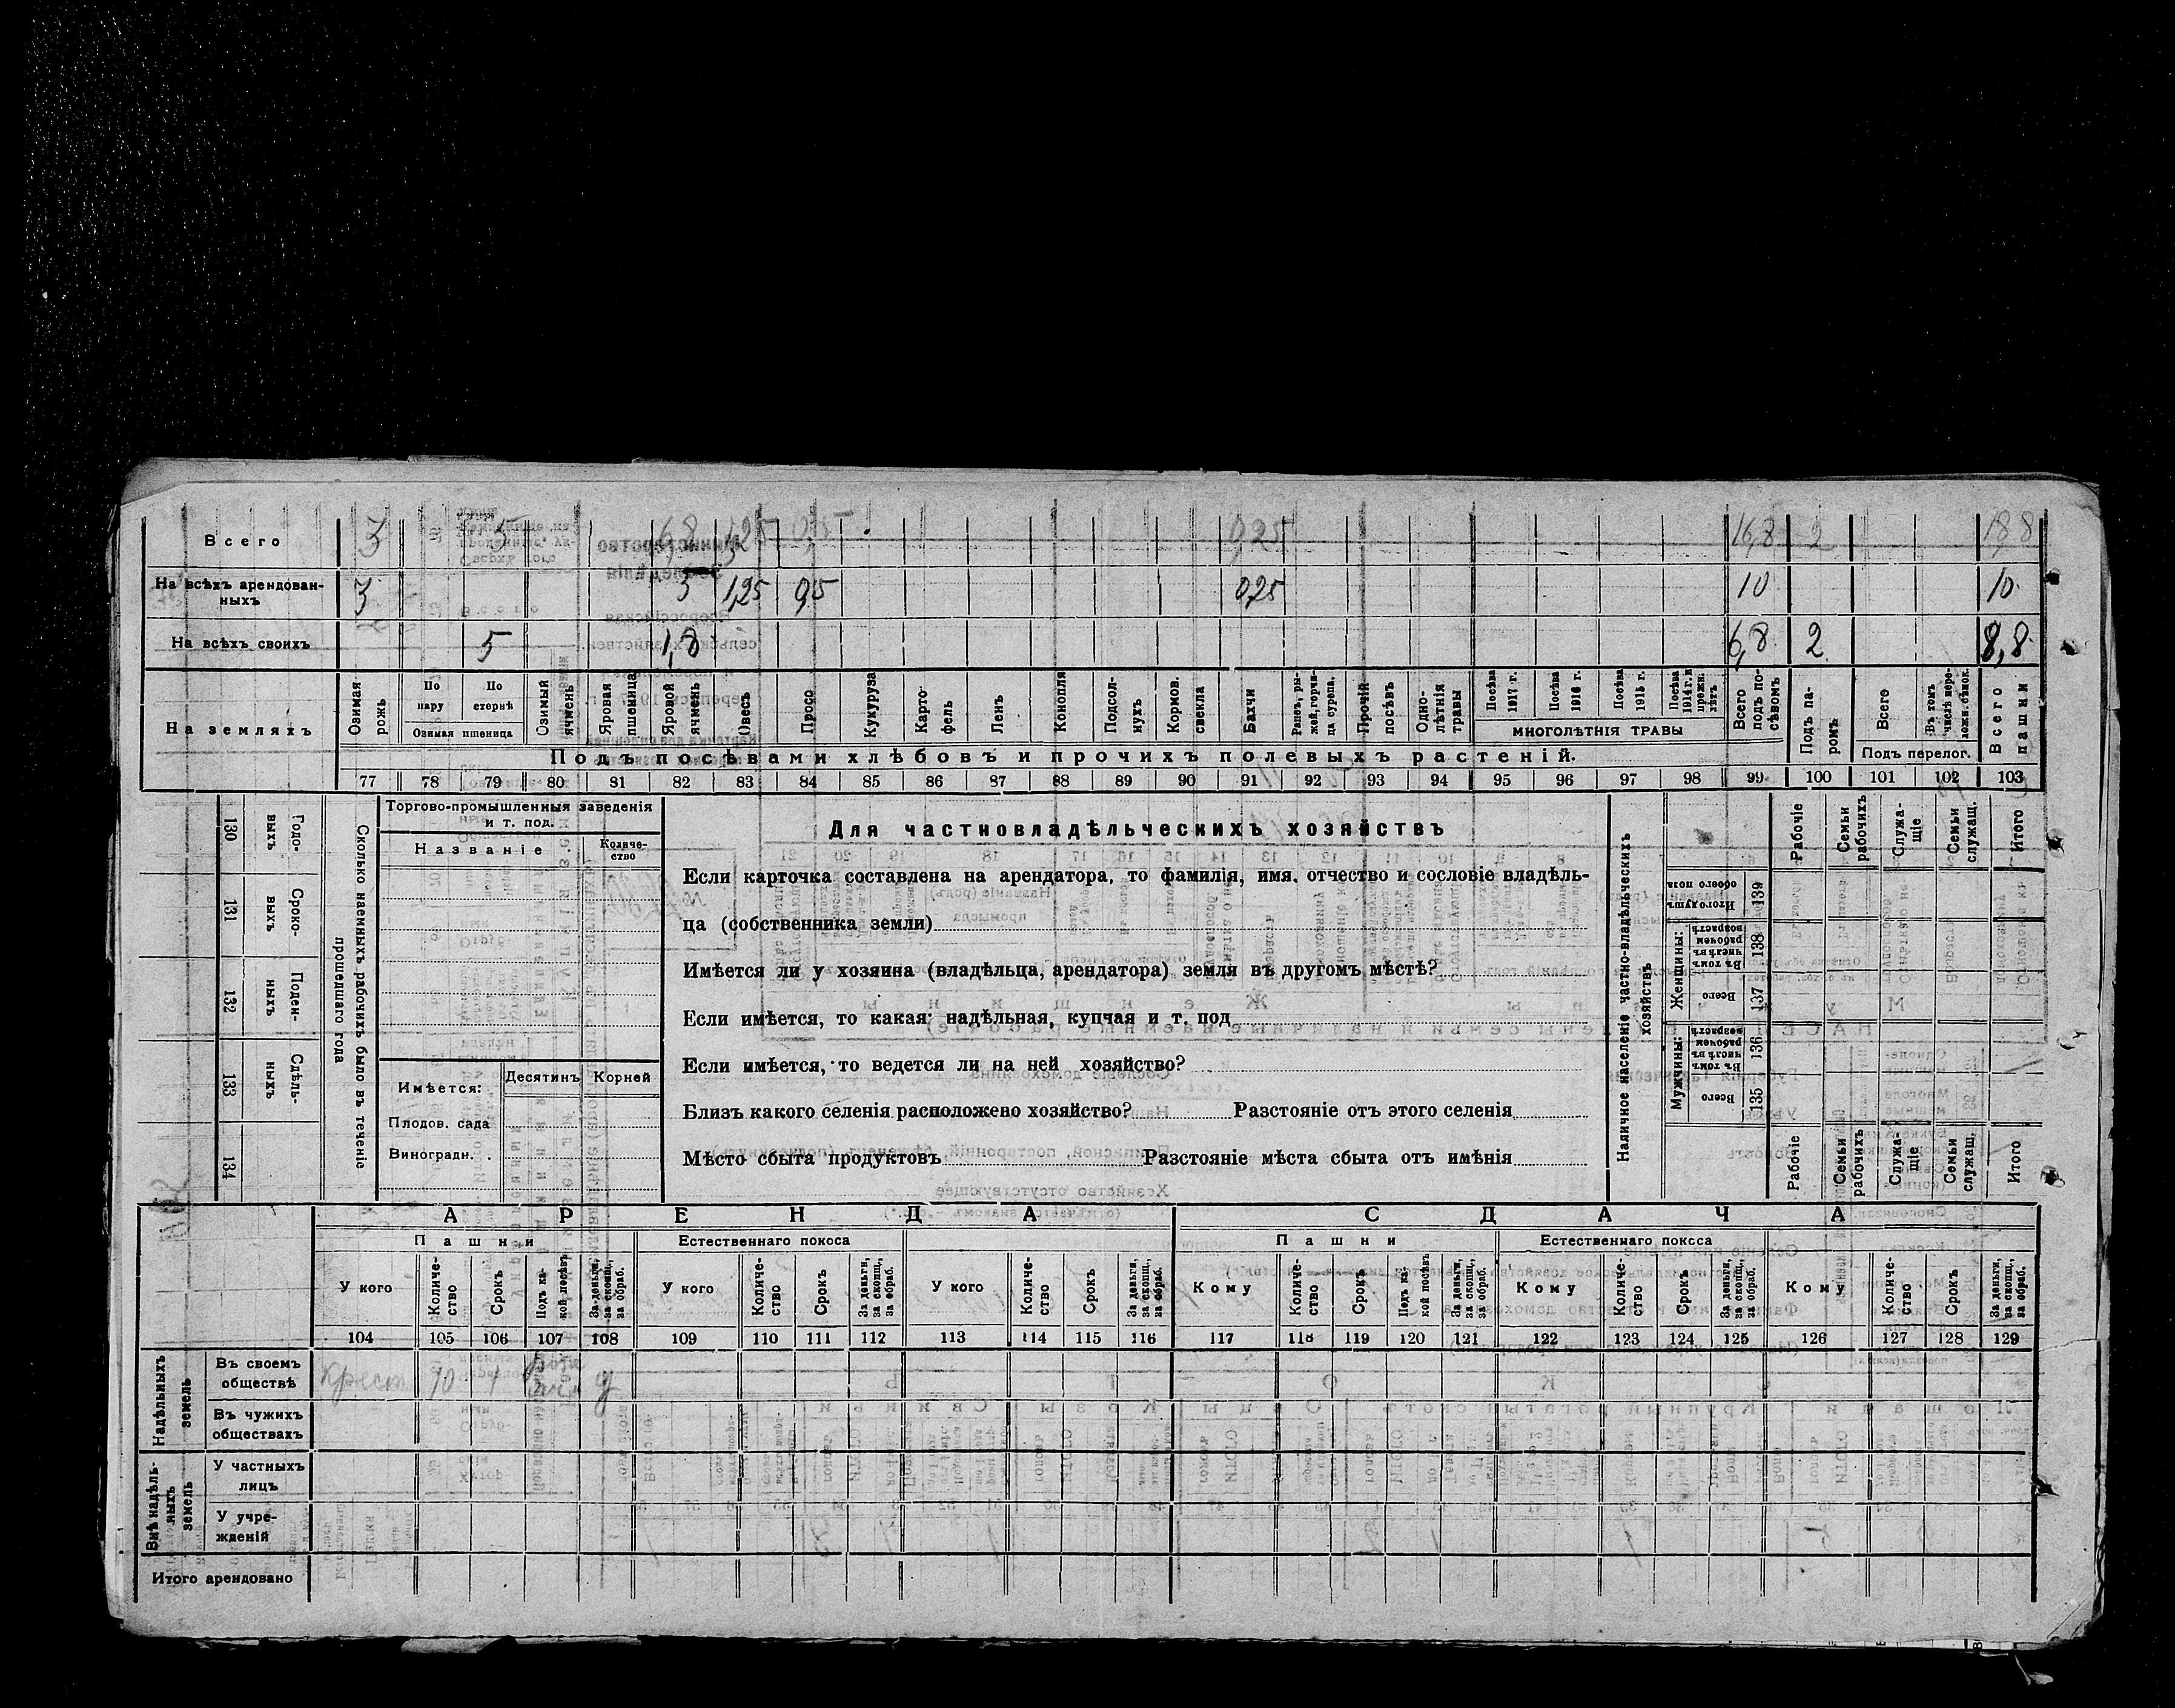 Всего 3 5 6,8 1,25 0,5 0,25 16,8 2 18,8
На всѣхъ арендован-
ныхъ 3 5 1,25 0,5 0,25 10 10
На всѣхъ своихъ 5 1,8 6,8 2 8,8
На земляхъ
Озимая рожь
По пару
По стернѣ
Озимая пшеница
Озимый ячмень
Яровая пшеница
Яровой ячмень
Овесъ
Просо
Кукуруза
Карто-
фель
Ленъ
Конопля
Подсол-
нухъ
Кормов. свекла
Бахчи
Рапсъ, ры-
жей, горчи-
ца сурепа.
Прочій посѣвъ
Одно-
лѣтнія травы
Посѣва 1917 г.
Посѣва 1916 г.
Посѣва 1915 г.
Посѣва 1914 г. и прежн. лѣтъ
МНОГОЛѢТНІЯ ТРАВЫ
Всего подъ по-
сѣвомъ
Подъ па-
ромъ
Всего
Въ томъ числѣ пере-
Подъ перелог.
Всего пашни
Подъ посѣвами хлѣбовъ и прочихъ полевыхъ растеній.
77 78 79 80 81 82 83 84 85 86 87 88 89 90 91 92 93 94 95 96 97 98 99 100 101 102 103
130 Годо-
выхъ
131 Сроко-
выхъ
132 Поден-
ныхъ
133 Сдѣль-
ныхъ
134
Сколько наемныхъ рабочихъ было въ теченіе
прошедшаго года
Торгово-промышленныя заведенія
и т. под.
Названіе
Количе-
ство
Имѣется: Десятинъ Корней
Плодов. сада
Виноградн.
Для частновладѣльческихъ хозяйствъ
Если карточка составлена на арендатора, то фамилія, имя, отчество и сословіе владѣль-
ца (собственника земли)
Имѣется ли у хозяина (владѣльца, арендатора) земля въ другомъ мѣстѣ?
Если имѣется, то какая: надѣльная, купчая и т. под
Если имѣется, то ведется ли на ней хозяйство?
Близъ какого селенія расположено хозяйство? Разстояніе отъ этого селенія
Мѣсто сбыта продуктовъ Разстояніе мѣста сбыта отъ имѣнія
Наличное населеніе частно-владѣльческихъ
хозяйствъ
Рабочіе
Семьи рабочихъ
Служа-
щіе
Семьи служащ.
Итого
Итого душъ обоего пола 139
Женщины:
Въ томъ числѣ въ рабочемъ возрастѣ 138
Всего 137
Мужчины:
Въ томъ числѣ въ рабочемъ возрастѣ 136
Всего 135
Рабочіе
Семьи рабочихъ
Служа-
щіе
Семьи служащ.
Итого
АРЕНДА СДАЧА
Пашни Естественнаго покоса Пашни Естественнаго покоса
У кого
Количе-
ство
Срокъ
Подъ ка-
кой посѣвъ
За деньги, за скопщ., за обраб.
У кого
Количе-
ство
Срокъ
За деньги, за скопщ., за обраб.
У кого
Количе-
ство
Срокъ
За деньги, за скопщ., за обраб.
Кому
Количе-
ство
Срокъ
Подъ ка-
кой посѣвъ
За деньги, за скопщ., за обраб.
Кому
Количе-
ство
Срокъ
За деньги, за скопщ., за обраб.
Кому
Количе-
ство
Срокъ
За деньги, за скопщ., за обраб.
104 105 106 107 108 109 110 111 112 113 114 115 116 117 118 119 120 121 122 123 124 125 126 127 128 129
Надѣльныхъ
земель
Въ своемъ
обществѣ Крест 10 1 д
Въ чужихъ
обществахъ
Внѣ надѣль-
ныхъ
земель
У частныхъ
лицъ
У учре-
жденій
Итого арендовано